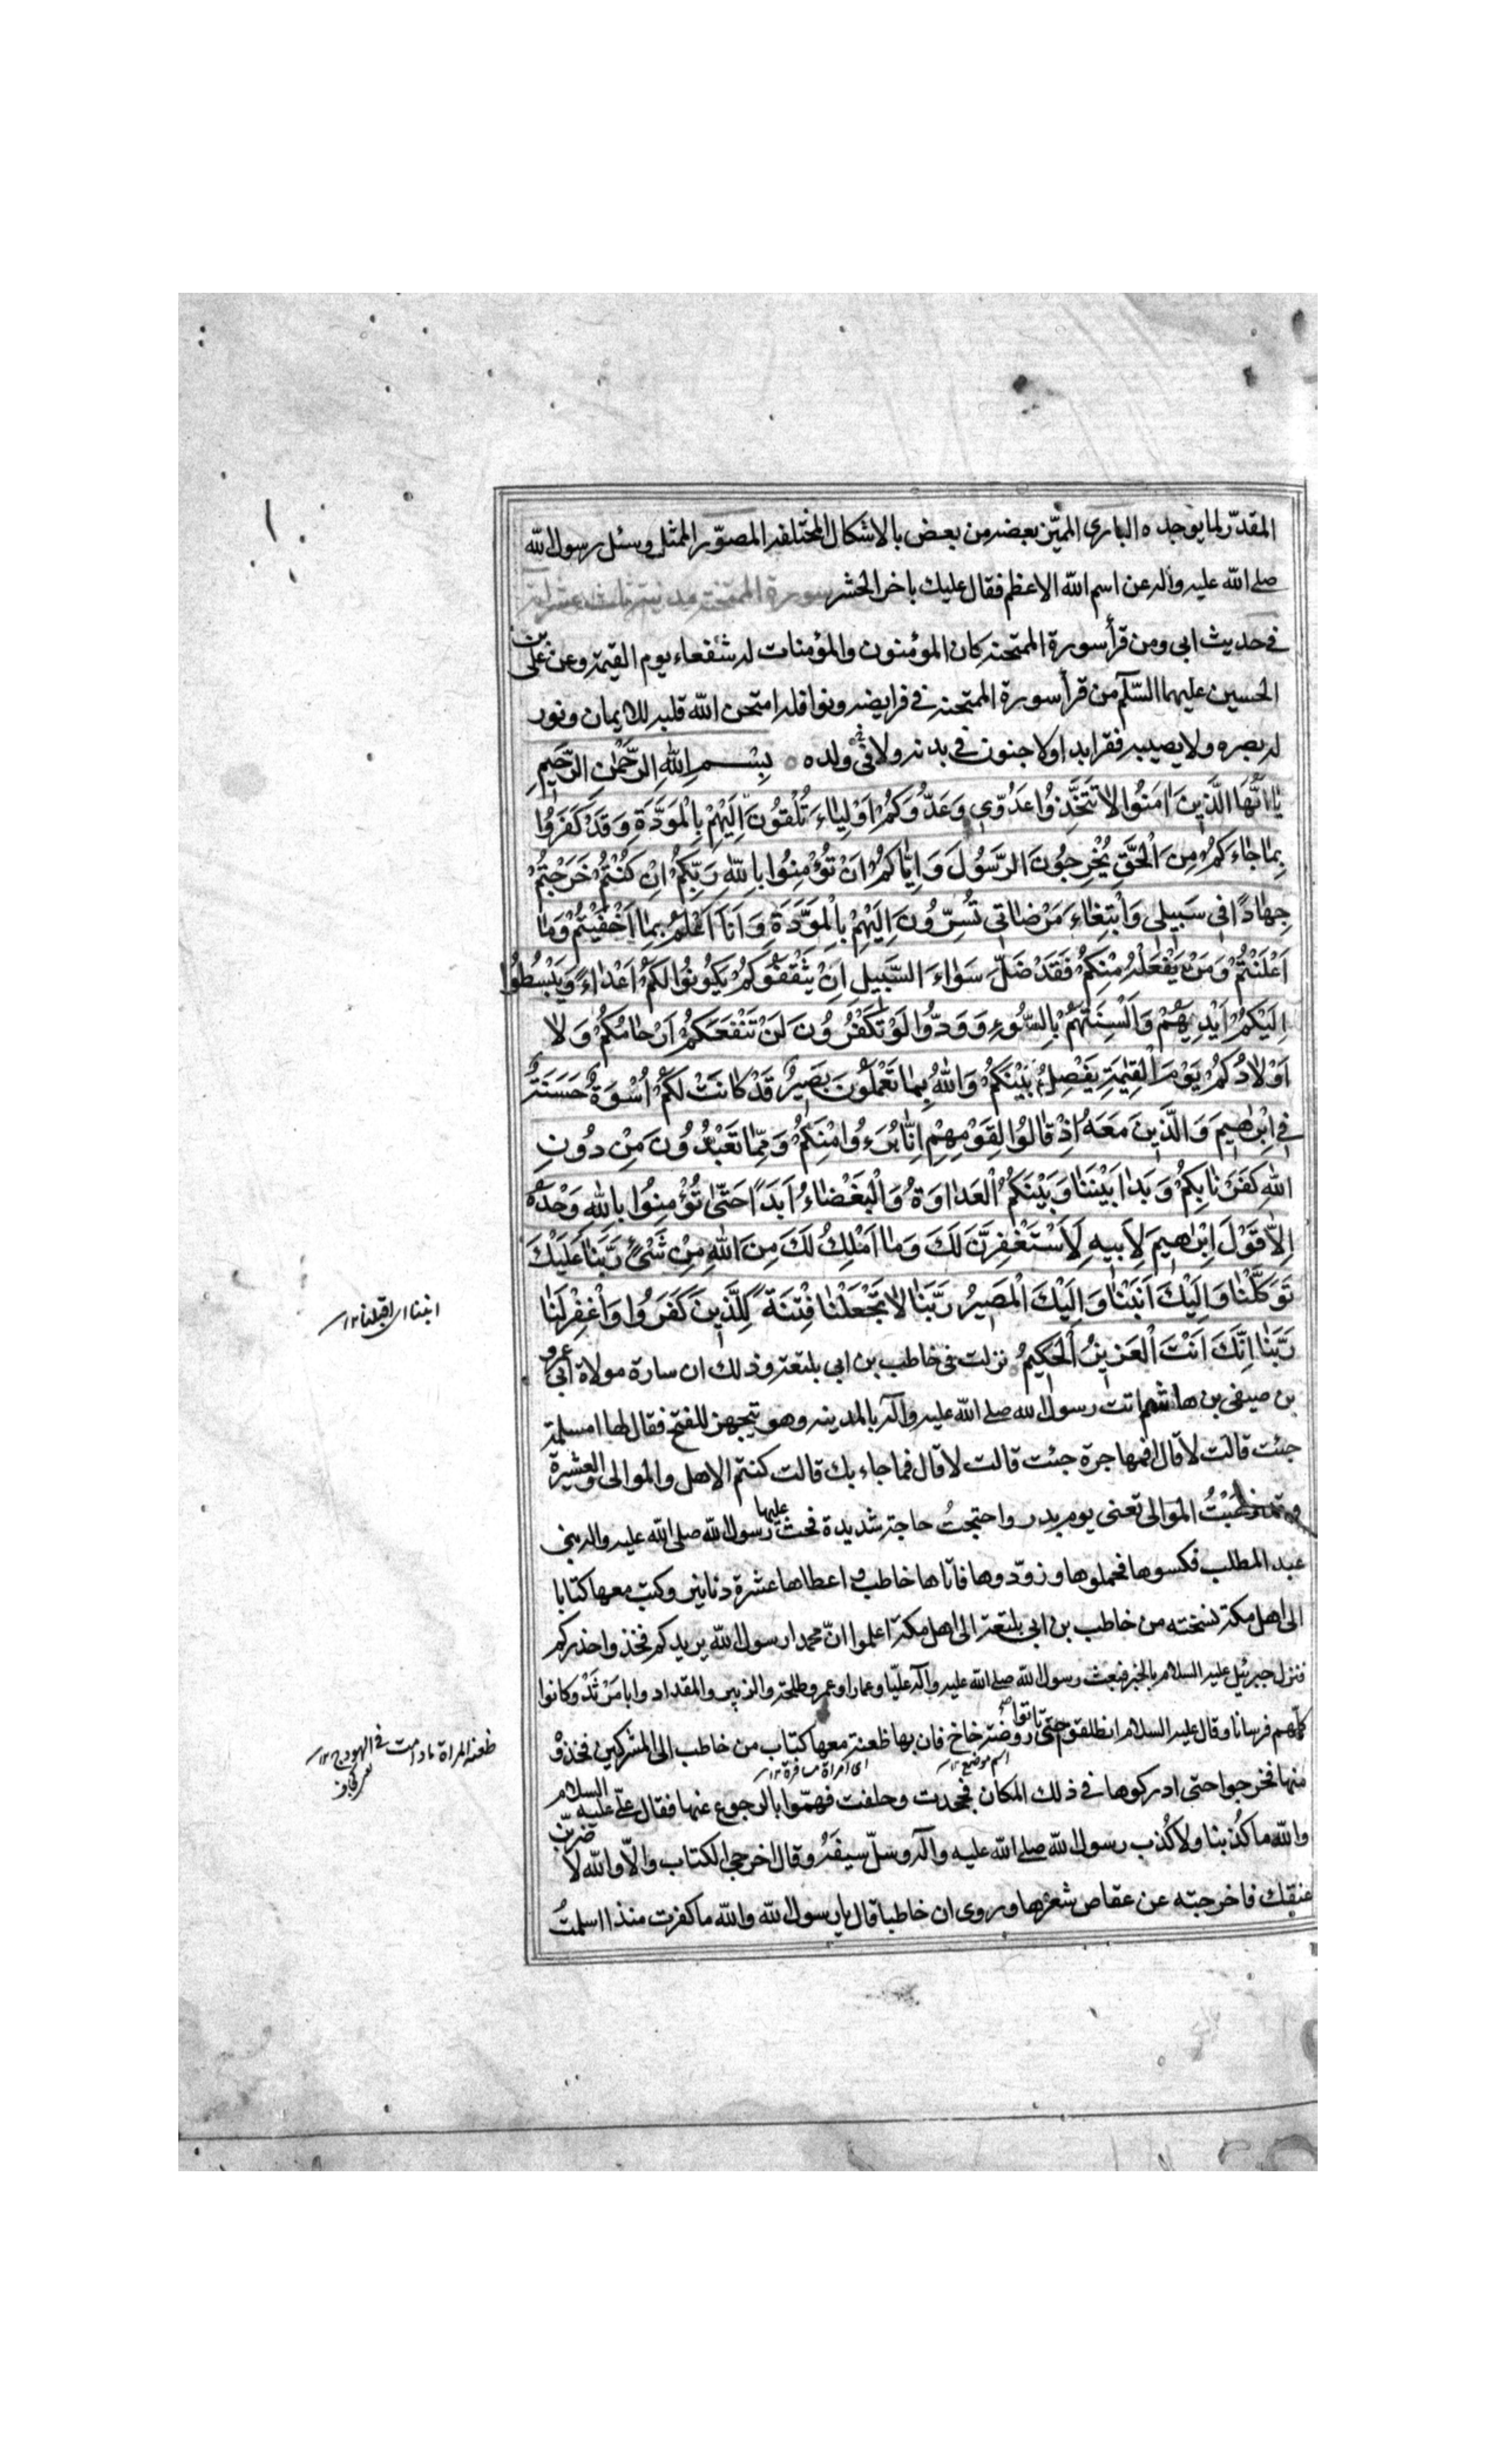 المقدّر لما يوجده البارى المميّز بعضه من بعض بالاشكال المختلفه المصوّر الممثل وسئل رسول الله
صلى الله عليه واله عن اسم الله الاعظم فقال عليك باخر الحشر سورة الممتحنه مدنيته ثلث عشر اية
فى حديث ابى ومن قرأ سورة الممتحنه كان المؤمنون والمؤمنات له شفعاء يوم القيمة وعن على بن
الحسين عليهما السّلام من قرأ سورة الممتحنه فى فرايضه ونوافله امتحن الله قلبه للايمان ونور
له بصره ولا يصيبه فقر ابدا ولا جنون فى بدنه ولا فى ولده بِسْمِ اللهِ الرَّحْمٰنِ الرَّحِيمِ
يٰا اَيُّهَا الَّذِينَ اٰمَنُوا لاٰ تَتَّخِذُوا عَدُوّىِ وَعَدُوَّكُمْ اَوْلِيٰاءَ تُلْقُونَ اِلَيْهِمْ بِالْمَوَدَّةِ وَقَدْ كَفَرُوا
بِمٰا جٰاءَكُمْ مِنَ الْحَقِّ يُخْرِجُونَ الرَّسُولَ وَاِيّٰاكُمْ اَنْ تُؤْمِنُوا بِاللهِ رَبِّكُمْ اِنْ كُنْتُمْ خَرَجْتُمْ
جِهٰادًا فِى سَبِيلِى وَابْتِغٰاءَ مَرْضٰاتِى تُسِرُّونَ اِلَيْهِمْ بِالْمَوَدَّةِ وَاَنَا اَعْلَمُ بِمٰا اَخْفَيْتُمْ وَمٰا
اَعْلَنْتُمْ وَمَنْ يَفْعَلْهُ مِنْكُمْ فَقَدْ ضَلَّ سَوٰاءَ السَّبِيلِ اِنْ يَثْقَفُوكُمْ يَكُونُوا لَكُمْ اَعْدٰاءً وَيَبْسُطُوا
اِلَيْكُمْ اَيْدِيَهُمْ وَاَلْسِنَتَهُمْ بِالسُّوءِ وَوَدُّوا لَوْ تَكْفُرُونَ لَنْ تَنْفَعَكُمْ اَرْحٰامُكُمْ وَلاٰ
اَوْلاٰدُكُمْ يَوْمَ الْقِيٰمَةِ يَفْصِلُ بَيْنَكُمْ وَاللهُ بِمٰا تَعْمَلُونَ بَصِيرٌ قَدْ كٰانَتْ لَكُمْ اُسْوَةٌ حَسَنَةٌ
فِى اِبْرٰهِيمَ وَالَّذِينَ مَعَهُ اِذْ قٰالُوا لِقَوْمِهِمْ اِنّٰا بُرَءٰؤُا مِنْكُمْ وَمِمّٰا تَعْبُدُونَ مِنْ دُونِ
اللهِ كَفَرْنٰا بِكُمْ وَبَدٰا بَيْنَنٰا وَبَيْنَكُمُ الْعَدٰاوَةُ وَالْبَغْضٰاءُ اَبَدًا حَتّٰى تُؤْمِنُوا بِاللهِ وَحْدَهُ
اِلاّٰ قَوْلَ اِبْرٰهِيمَ لِاَبِيهِ لَاَسْتَغْفِرَنَّ لَكَ وَمٰا اَمْلِكُ لَكَ مِنَ اللهِ مِنْ شَىْءٍ رَبَّنٰا عَلَيْكَ
تَوَكَّلْنٰا وَاِلَيْكَ اَنَبْنٰا وَاِلَيْكَ الْمَصِيرُ رَبَّنٰا لاٰ تَجْعَلْنٰا فِتْنَةً لِلَّذِينَ كَفَرُوا وَاغْفِرْ لَنٰا
انبنا اى اقبلنا ١٢
رَبَّنٰا اِنَّكَ اَنْتَ الْعَزِيزُ الْحَكِيمُ نزلت فى خاطب بن ابى بلتعة وذلك ان سارة مولاة ابى عمرو
بن صيفى بن هاشم اتت رسول الله صلى الله عليه وآله بالمدينه وهو يتجهز للفتح فقال لها امسلمة
جئت قالت لا قال افمهاجرة جئت قالت لا قال فما جاء بك قالت كنتم الاهل والموالى والعشيرة
ذهبتُ الموالى تعنى يوم بدر واحتجتُ حاجة شديدة فحث عليها رسول الله صلى الله عليه واله بنى
عبد المطلب فكسوها فحملوها وزوّدوها فاتاها خاطب و اعطاها عشرة دنانير وكتب معها كتابا
الى اهل مكة نسخته من خاطب بن ابى بلتعة الى اهل مكة اعلموا انّ محمدا رسول الله يريدكم فخذوا حذركم
فنزل جبرئيل عليه السلام بالخبر فبعث رسول الله صلى الله عليه وآله عليّا وعمارا وعمر وطلحة والزبير والمقداد وابا مَرْثَدْ وكانوا
كلّهم فرسانا وقال عليه السلام انطلقوا حتى تاتوا روضة خاخ فان بها ظعنة معها كتاب من خاطب الى المشركين فخذوْ
اسم موضع ١٢
اى امراة مسافرة ١٢
ظعنه المراة ما دامت فى الهودج ١٢
منها فخرجوا حتى ادركوها فى ذلك المكان فجحدت وحلفت فهمّوا بالرجوع عنها فقال علىّ عليه السلام
والله ما كُذبنا ولا كُذب رسول الله صلى الله عليه وآله وسلّ سيفَهُ وقال اخرجى الكتاب والاّ والله لا ضربنّ
عنقك فاخرجته عن عقاص شعرها وروى ان خاطبا قال يا رسول الله والله ما كفرت منذ اسلمتُ